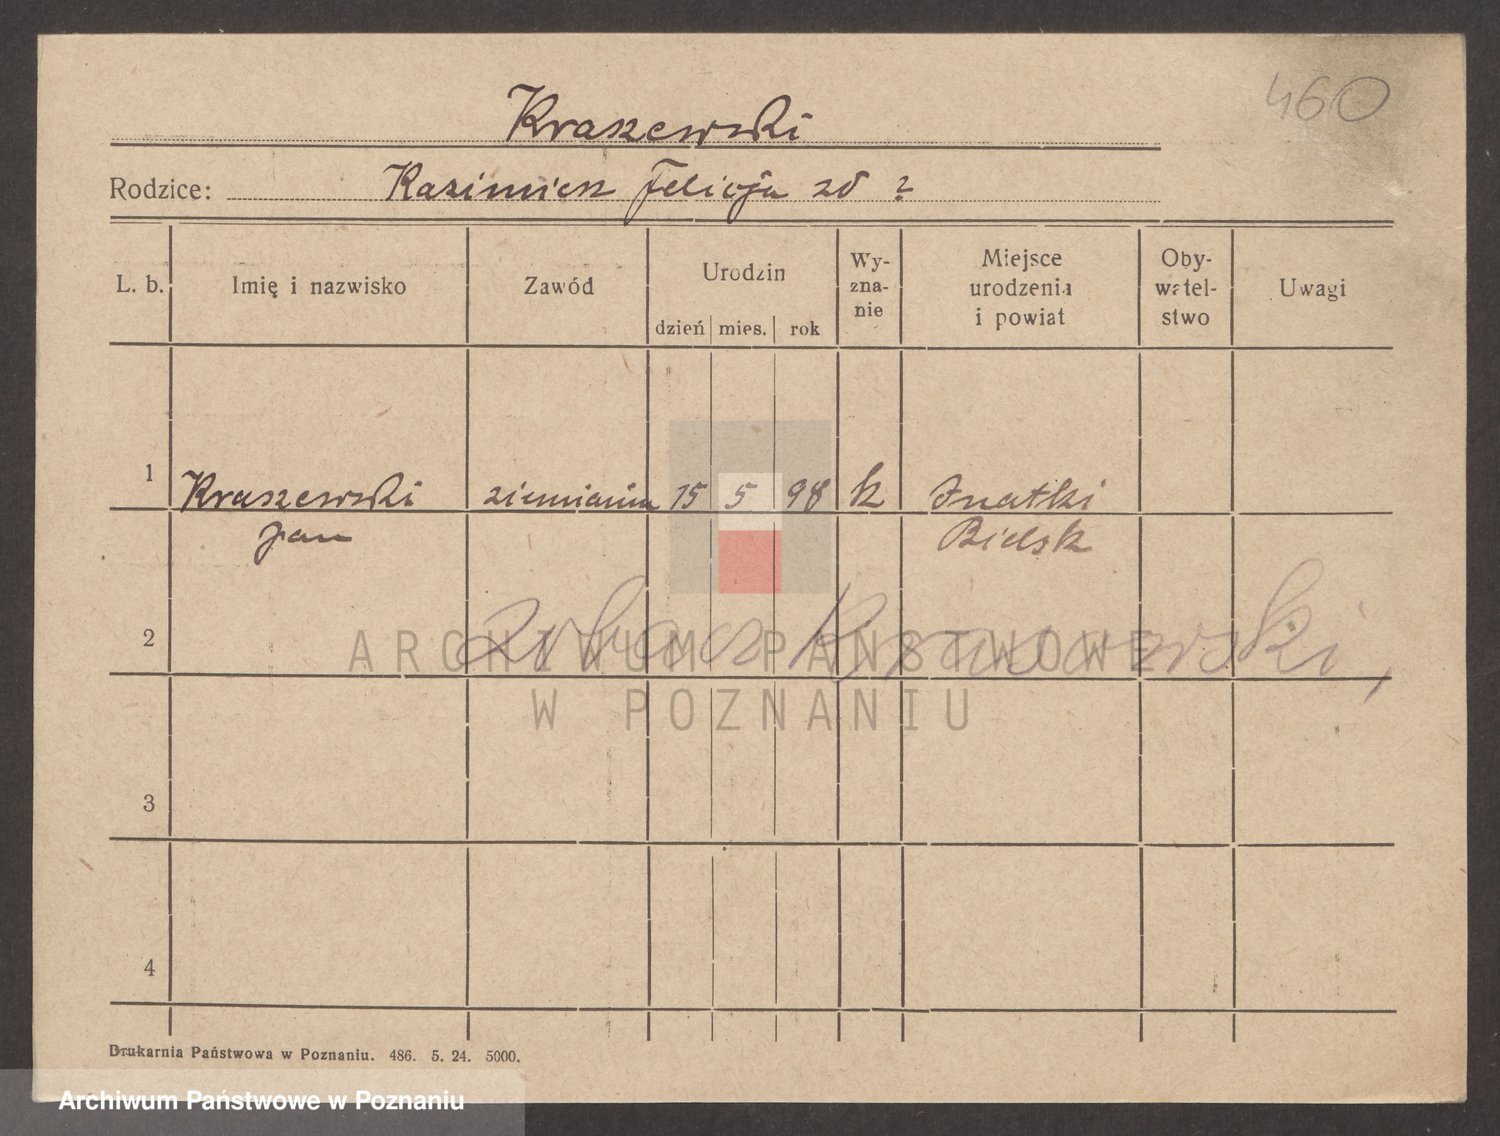 460
Kraszewski
Rodzice: Kazimierz Felicja zd ?
L. b. Imię i nazwisko Zawód Urodzin Wy-zna-nie Miejsce urodzenia i powiat Oby-watel-stwo Uwagi
dzień mies. rok
1 Kraszewski ziemianin 15 5 98 k Znatki
Jan Bielsk
2 zobacz Kraszewski,
3
4
Drukarnia Państwowa w Poznaniu. 486. 5. 24. 5000.
ARCHIWUM PAŃSTWOWE
W POZNANIU
Archiwum Państwowe w Poznaniu